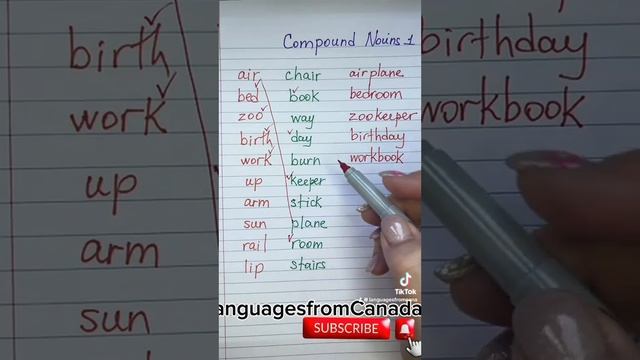 Compound Nouns 1
air chair airplane
bed book bedroom
zoo way zookeeper
birth day birthday
work burn workbook
up keeper
arm stick
sun plane
rail room
lip stairs
TikTok
@languagesfromcana
anguagesfromCanada
SUBSCRIBE
birth
work
up
arm
sun
birthday
workbook